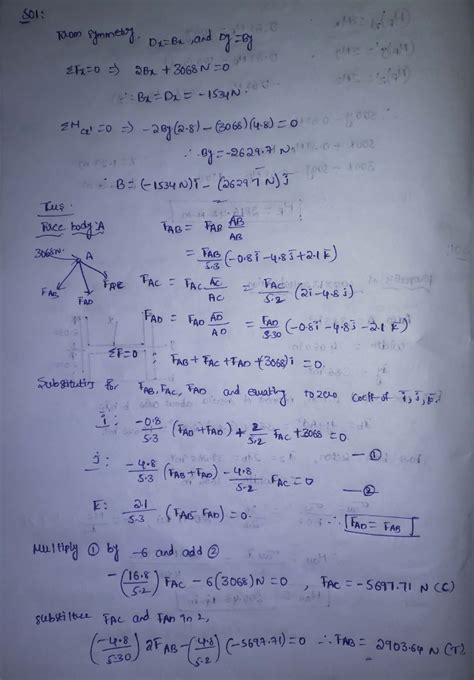 SOl:
From symmetry. Dx=Bx, and Dy=By
ΣFx=0 ⇒ 2Bx + 3068N=0
∴ Bx = Dx = -1534N.
ΣMcz'=0 ⇒ -2By(2.8) - (3068)(4.8) = 0
∴ By = -2629.71 N
∴ B = (-1534N)i - (2629.7 N)j
Thus.
Free body: A
3068N.
A
FAB
FAD
FAC
FAB = FAB AB/AB
= FAB/5.3 (-0.8i - 4.8j + 2.1k)
FAC = FAC AC/AC = FAC/5.2 (2i - 4.8j)
FAD = FAD AD/AD = FAD/5.30 (-0.8i - 4.8j - 2.1k)
ΣF=0
FAB + FAC + FAD + (3068)i = 0.
Substituting for FAB, FAC, FAD and equating to zero coeff. of i, j, k.
i: -0.8/5.3 (FAB + FAD) + 2/5.2 FAC + 3068 = 0 — ①
j: -4.8/5.3 (FAB + FAD) - 4.8/5.2 FAC = 0 — ②
k: 2.1/5.3 (FAB - FAD) = 0. ∴ FAD = FAB
Multiply ① by -6 and add ②
-(16.8/5.2) FAC - 6(3068)N = 0, FAC = -5697.71 N (C)
substitute FAC and FAD in 2,
(-4.8/5.30) 2FAB - (4.8/5.2)(-5697.71) = 0 ∴ FAB = 2903.64 N (T)